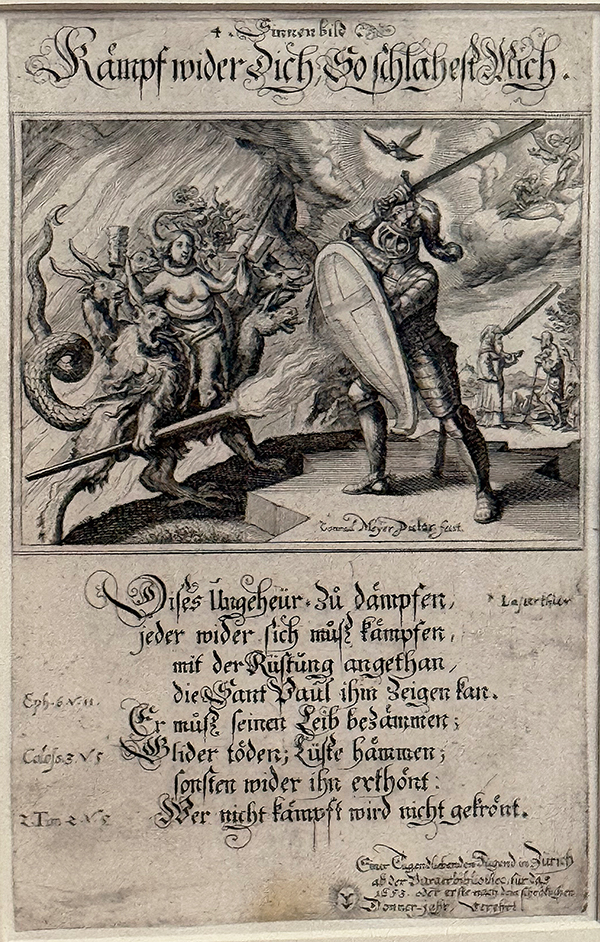 4. Sinnenbild
Kämpf wider Dich, So schlahest Mich.
Conrad Meyer Pictor fecit.
Dises Ungeheür zů dämpfen,
* Lasterthier
jeder wider sich můß kämpfen,
mit der Rüstung angethan,
Eph. 6. V. 11.
die Sant Paul ihm zeigen kan.
Er můß seinen Leib bezämmen;
Coloss. 3. V 5
Glider töden; Lüste hämmen;
sonsten wider ihn erthönt:
2 Tim. 2. V 5
Wer nicht kämpft wird nicht gekrönt.
Einer Tugendliebenden Jugend in Zürich
ab der Burgerbibliothec, für das
1653. oder erste nach dem schröklichen
Donner-jahr, Verehrt